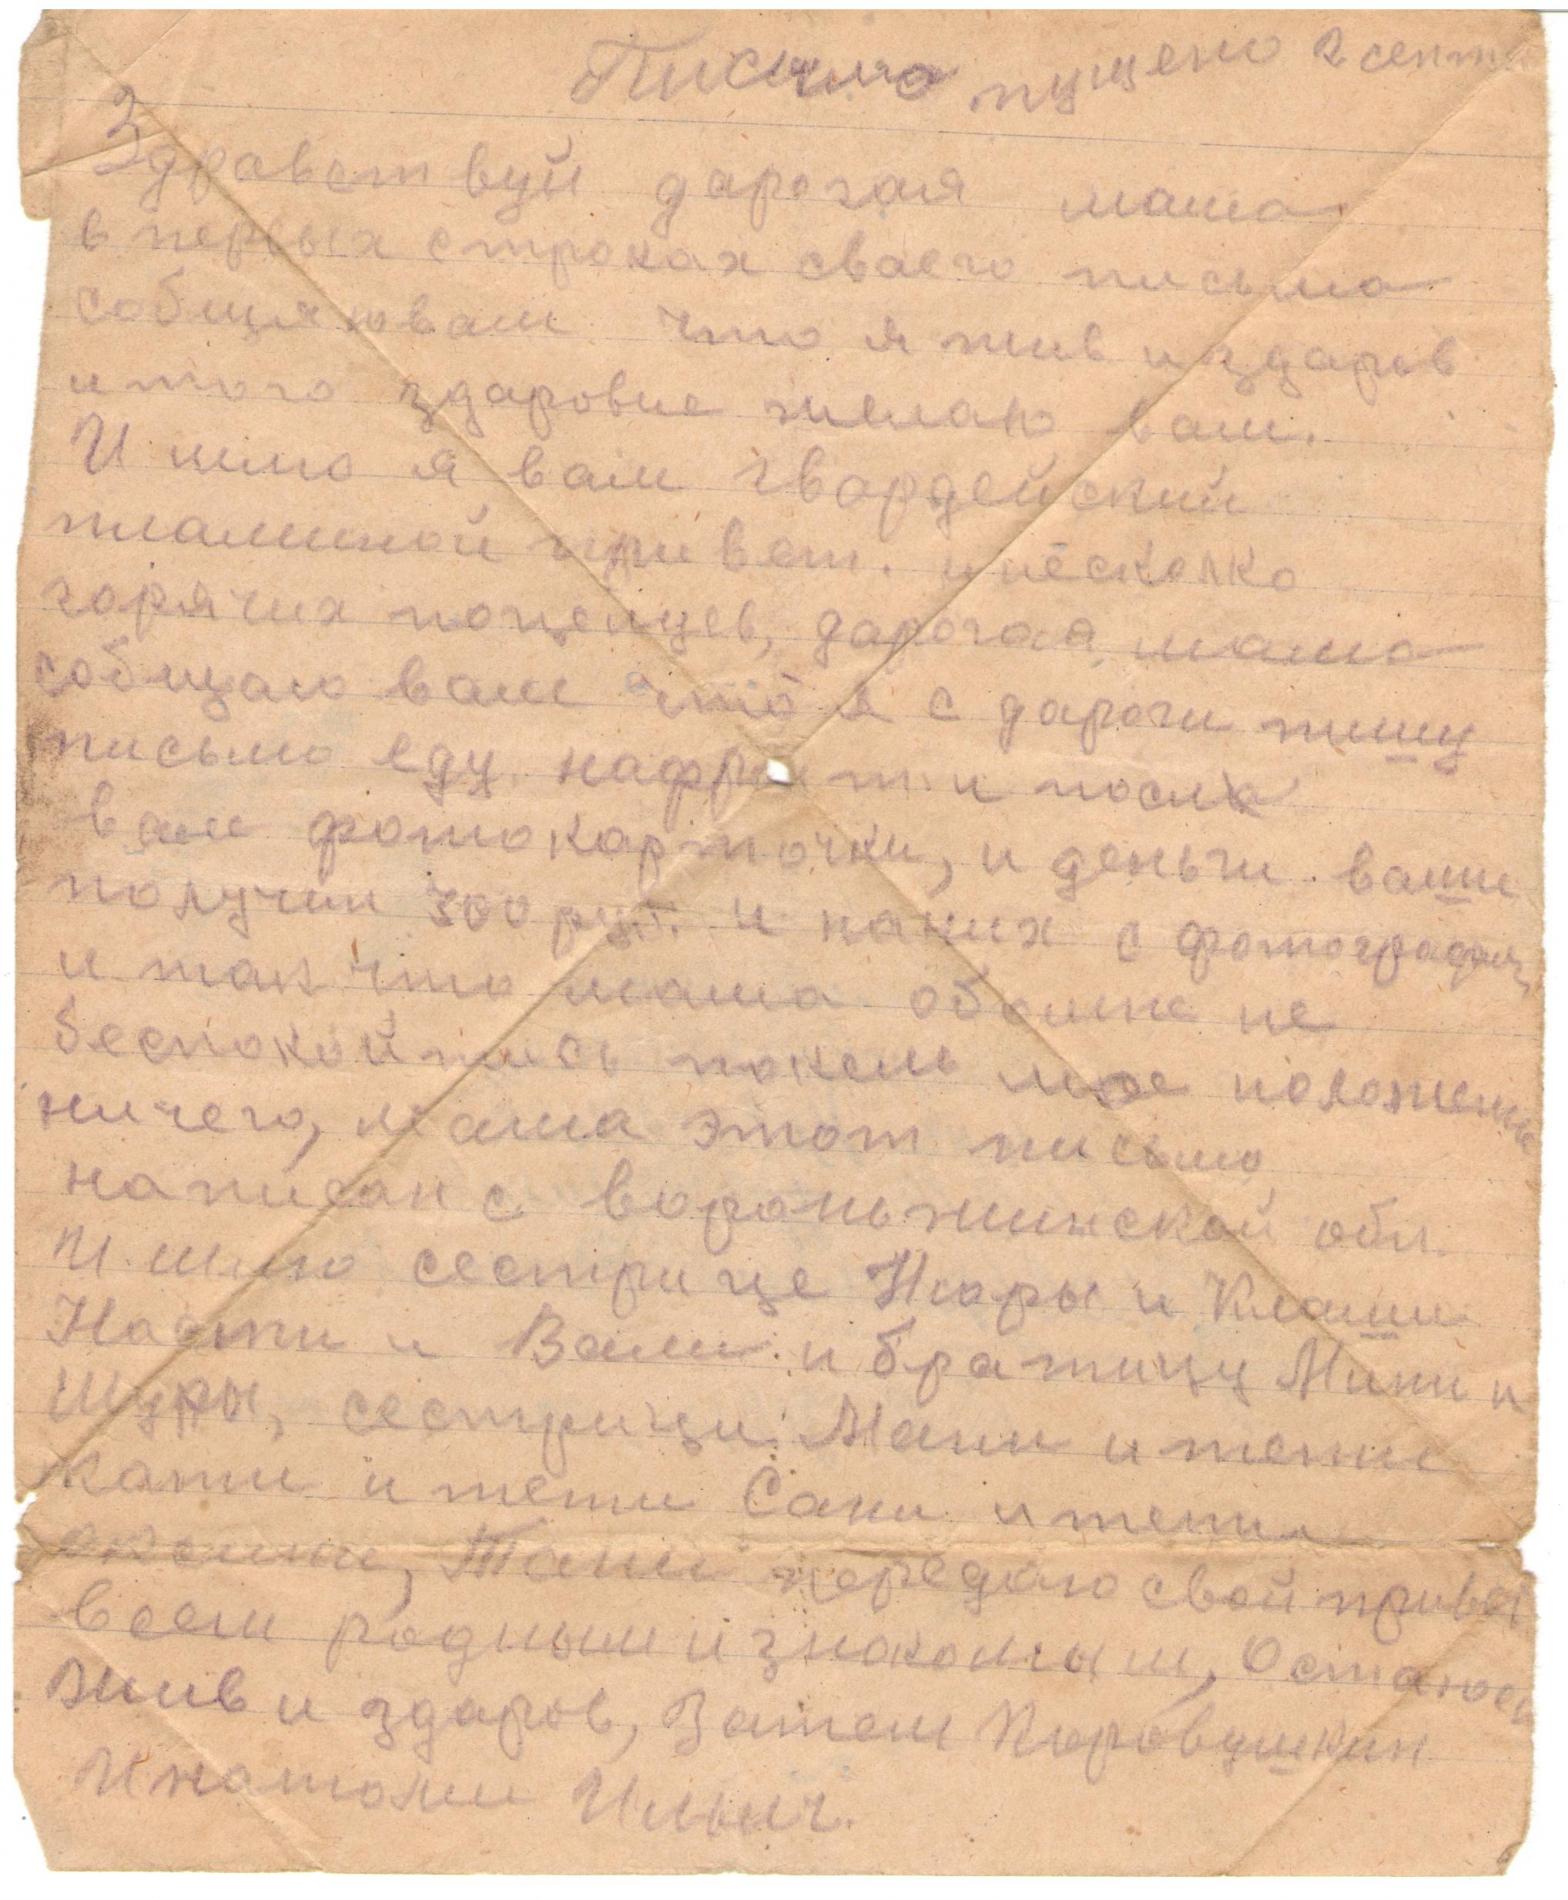 Письмо пущено 2 сент
Здравствуй дарогая мама
в первых строках сваего письма
собщяю вам что я жив и здаров
и того здаровие желаю вам.
И шлю я вам гвардейский
пламиной привет. и несколко
горячих поцелуев, дарогая мама
собщаю вам что я с дароги пишу
письмо еду нафронт и посла
вам фотокарточки, и деньги ваши
получил 300 руб. и на них с фотографом
и так что мама обо мне не
беспокойтись покель мое положение
ничего, мама этот письмо
написан с вороньжинской обл.
И шлю сестрице Нюры и Клаши
Насти и Вали и братицу Мити и
Шуры, сестрицы Мани и тети
кати и тети Сани и тети
аксини, Тани передаю свой привет
всем родным и знакомым, Остаюсь
жив и здаров, Затем Коровушкин
Инатоли Ильич.